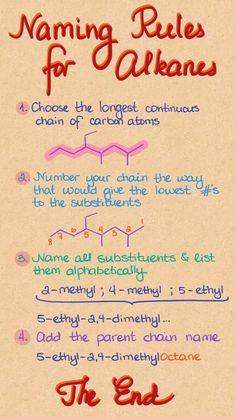 Naming Rules
for Alkanes
1. Choose the longest continuous
chain of carbon atoms
2. Number your chain the way
that would give the lowest #'s
to the substituents
8 7 6 5 4 3 2 1
3. Name all substituents & list
them alphabetically.
2-methyl ; 4-methyl ; 5-ethyl
5-ethyl-2,4-dimethyl...
4. Add the parent chain name
5-ethyl-2,4-dimethyloctane
The End